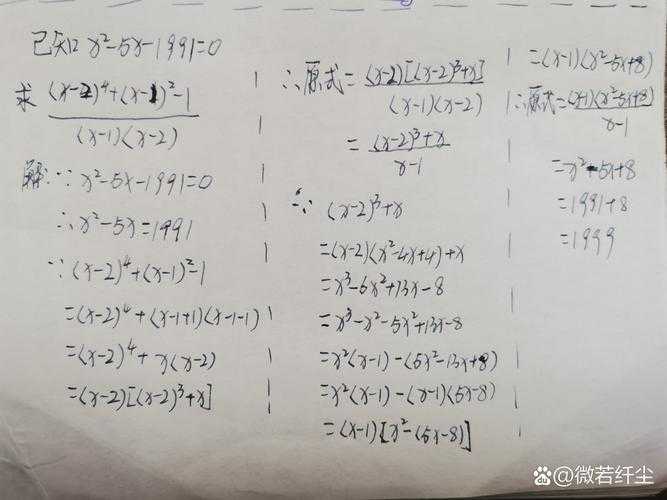 已知 x²-5x-1991=0
求 (x-2)⁴+(x-1)²-1
(x-1)(x-2)
解:∵ x²-5x-1991=0
∴x²-5x=1991
∵(x-2)⁴+(x-1)²-1
=(x-2)⁴+(x-1+1)(x-1-1)
=(x-2)⁴+x(x-2)
=(x-2)[(x-2)³+x]
∴原式=(x-2)[(x-2)³+x]
(x-1)(x-2)
=(x-2)³+x
x-1
∵ (x-2)³+x
=(x-2)(x²-4x+4)+x
=x³-6x²+13x-8
=x³-x²-5x²+13x-8
=x²(x-1)-(5x²-13x+8)
=x²(x-1)-(x-1)(5x-8)
=(x-1)[x²-(5x-8)]
=(x-1)(x²-5x+8)
∴原式=(x-1)(x²-5x+8)
x-1
=x²-5x+8
=1991+8
=1999
@微若纤尘